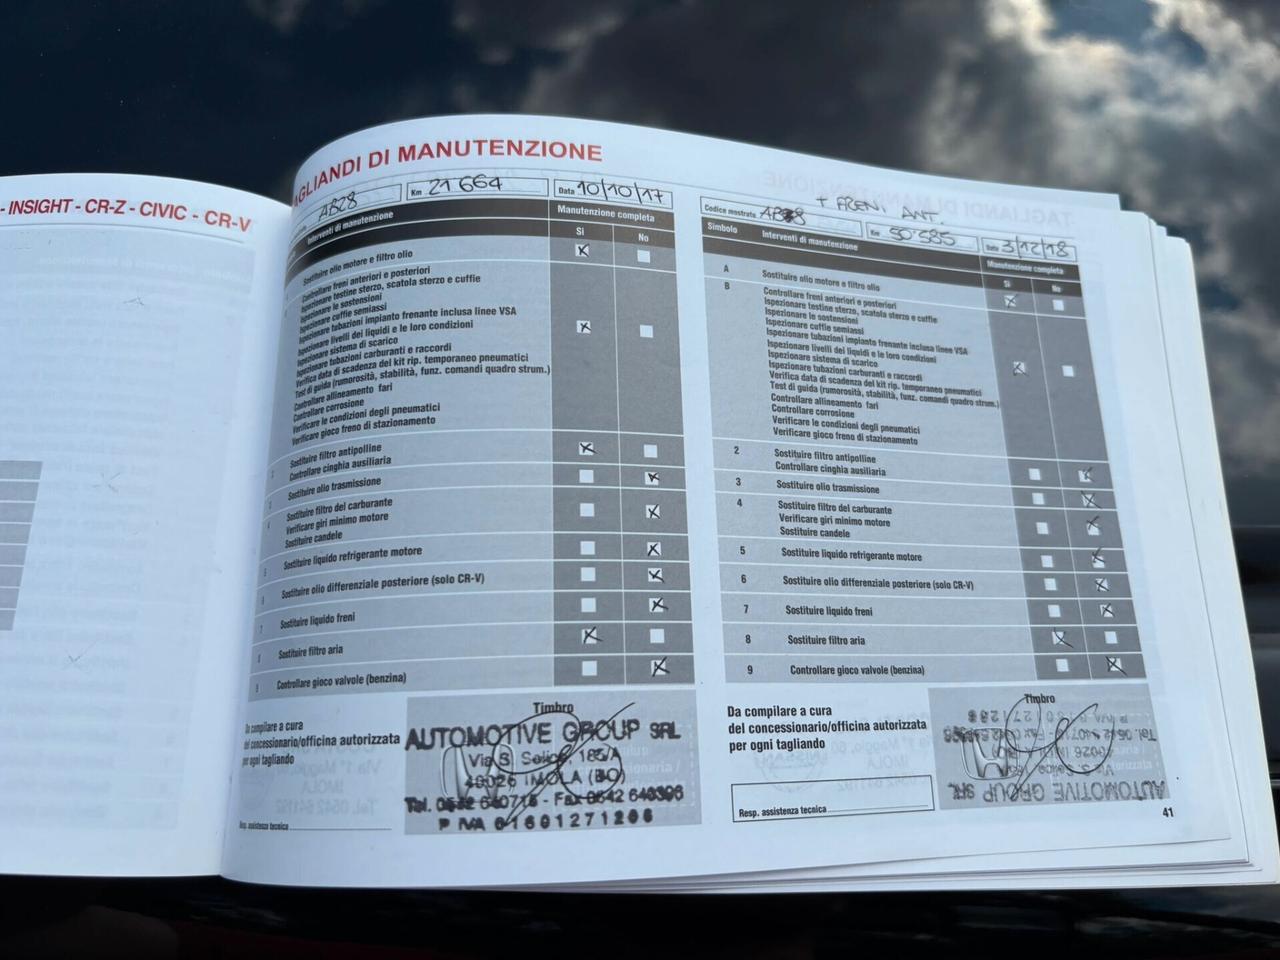 - INSIGHT - CR-Z - CIVIC - CR-V
AGLIANDI DI MANUTENZIONE
AB28
Km 21 664
Data 10/10/17
Interventi di manutenzione
Manutenzione completa
Si
No
Sostituire olio motore e filtro olio
Controllare freni anteriori e posteriori
Ispezionare testine sterzo, scatola sterzo e cuffie
Ispezionare le sostensioni
Ispezionare cuffie semiassi
Ispezionare tubazioni impianto frenante inclusa linee VSA
Ispezionare livelli dei liquidi e le loro condizioni
Ispezionare sistema di scarico
Ispezionare tubazioni carburanti e raccordi
Verifica data di scadenza del kit rip. temporaneo pneumatici
Test di guida (rumorosità, stabilità, funz. comandi quadro strum.)
Controllare allineamento fari
Controllare corrosione
Verificare le condizioni degli pneumatici
Verificare gioco freno di stazionamento
Sostituire filtro antipolline
Controllare cinghia ausiliaria
Sostituire olio trasmissione
Sostituire filtro del carburante
Verificare giri minimo motore
Sostituire candele
Sostituire liquido refrigerante motore
Sostituire olio differenziale posteriore (solo CR-V)
Sostituire liquido freni
Sostituire filtro aria
Controllare gioco valvole (benzina)
Da compilare a cura
del concessionario/officina autorizzata
per ogni tagliando
Resp. assistenza tecnica
Timbro
AUTOMOTIVE GROUP SRL
Via S. Selice, 185/A
40026 IMOLA (BO)
Tel. 0542 640718 - Fax 0542 640396
P IVA 01601271206
+ FRENI ANT
Codice mostrato
Km 50'585
Data 3/12/18
Simbolo
Interventi di manutenzione
Manutenzione completa
Si
No
A Sostituire olio motore e filtro olio
B Controllare freni anteriori e posteriori
Ispezionare testine sterzo, scatola sterzo e cuffie
Ispezionare le sostensioni
Ispezionare cuffie semiassi
Ispezionare tubazioni impianto frenante inclusa linee VSA
Ispezionare livelli dei liquidi e le loro condizioni
Ispezionare sistema di scarico
Ispezionare tubazioni carburanti e raccordi
Verifica data di scadenza del kit rip. temporaneo pneumatici
Test di guida (rumorosità, stabilità, funz. comandi quadro strum.)
Controllare allineamento fari
Controllare corrosione
Verificare le condizioni degli pneumatici
Verificare gioco freno di stazionamento
2 Sostituire filtro antipolline
Controllare cinghia ausiliaria
3 Sostituire olio trasmissione
4 Sostituire filtro del carburante
Verificare giri minimo motore
Sostituire candele
5 Sostituire liquido refrigerante motore
6 Sostituire olio differenziale posteriore (solo CR-V)
7 Sostituire liquido freni
8 Sostituire filtro aria
9 Controllare gioco valvole (benzina)
Da compilare a cura
del concessionario/officina autorizzata
per ogni tagliando
Resp. assistenza tecnica
Timbro
AUTOMOTIVE GROUP SRL
41